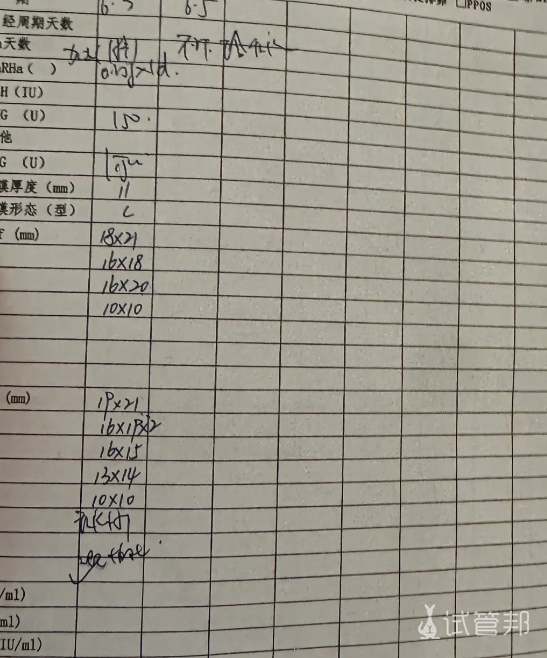 期 6.3 6.5
经周期天数
天数
RHa( )
H(IU)
G (U) 150.
他
G (U)
膜厚度(mm) 11
膜形态(型) C
f (mm) 18×21
16×18
16×20
10×10
(mm) 19×21
16×19×2
16×15
13×14
10×10
/ml)
ml)
IU/ml)
□PPOS
试管邦